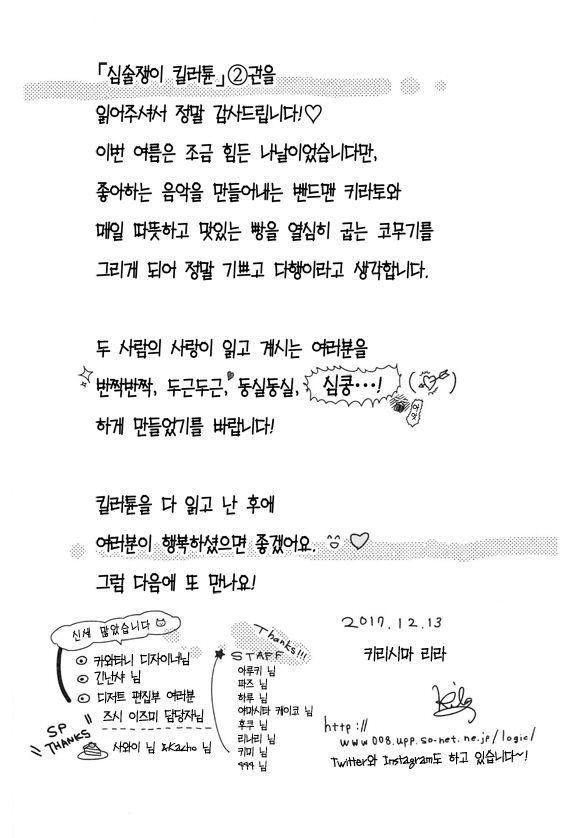 「심술쟁이 킬러튠」②권을
읽어주셔서 정말 감사드립니다!♡
이번 여름은 조금 힘든 나날이었습니다만,
좋아하는 음악을 만들어내는 밴드맨 키라토와
매일 따뜻하고 맛있는 빵을 열심히 굽는 코무기를
그리게 되어 정말 기쁘고 다행이라고 생각합니다.
두 사람의 사랑이 읽고 계시는 여러분을
반짝반짝, 두근두근, 둥실둥실, 심쿵…!
하게 만들었기를 바랍니다!
킬러튠을 다 읽고 난 후에
여러분이 행복하셨으면 좋겠어요. ♡
그럼 다음에 또 만나요!
신세 많았습니다
카와타니 디자이너님
긴난샤 님
디저트 편집부 여러분
즈시 이즈미 담당자님
SP THANKS
사와이 님 &Kacho 님
Thanks!!!
STAFF
아루키 님
파즈 님
하루 님
야마시타 케이코 님
후쿠 님
리나리 님
키미 님
999 님
2017.12.13
키리시마 리라
http://
www008.upp.so-net.ne.jp/logic/
Twitter와 Instagram도 하고 있습니다~!